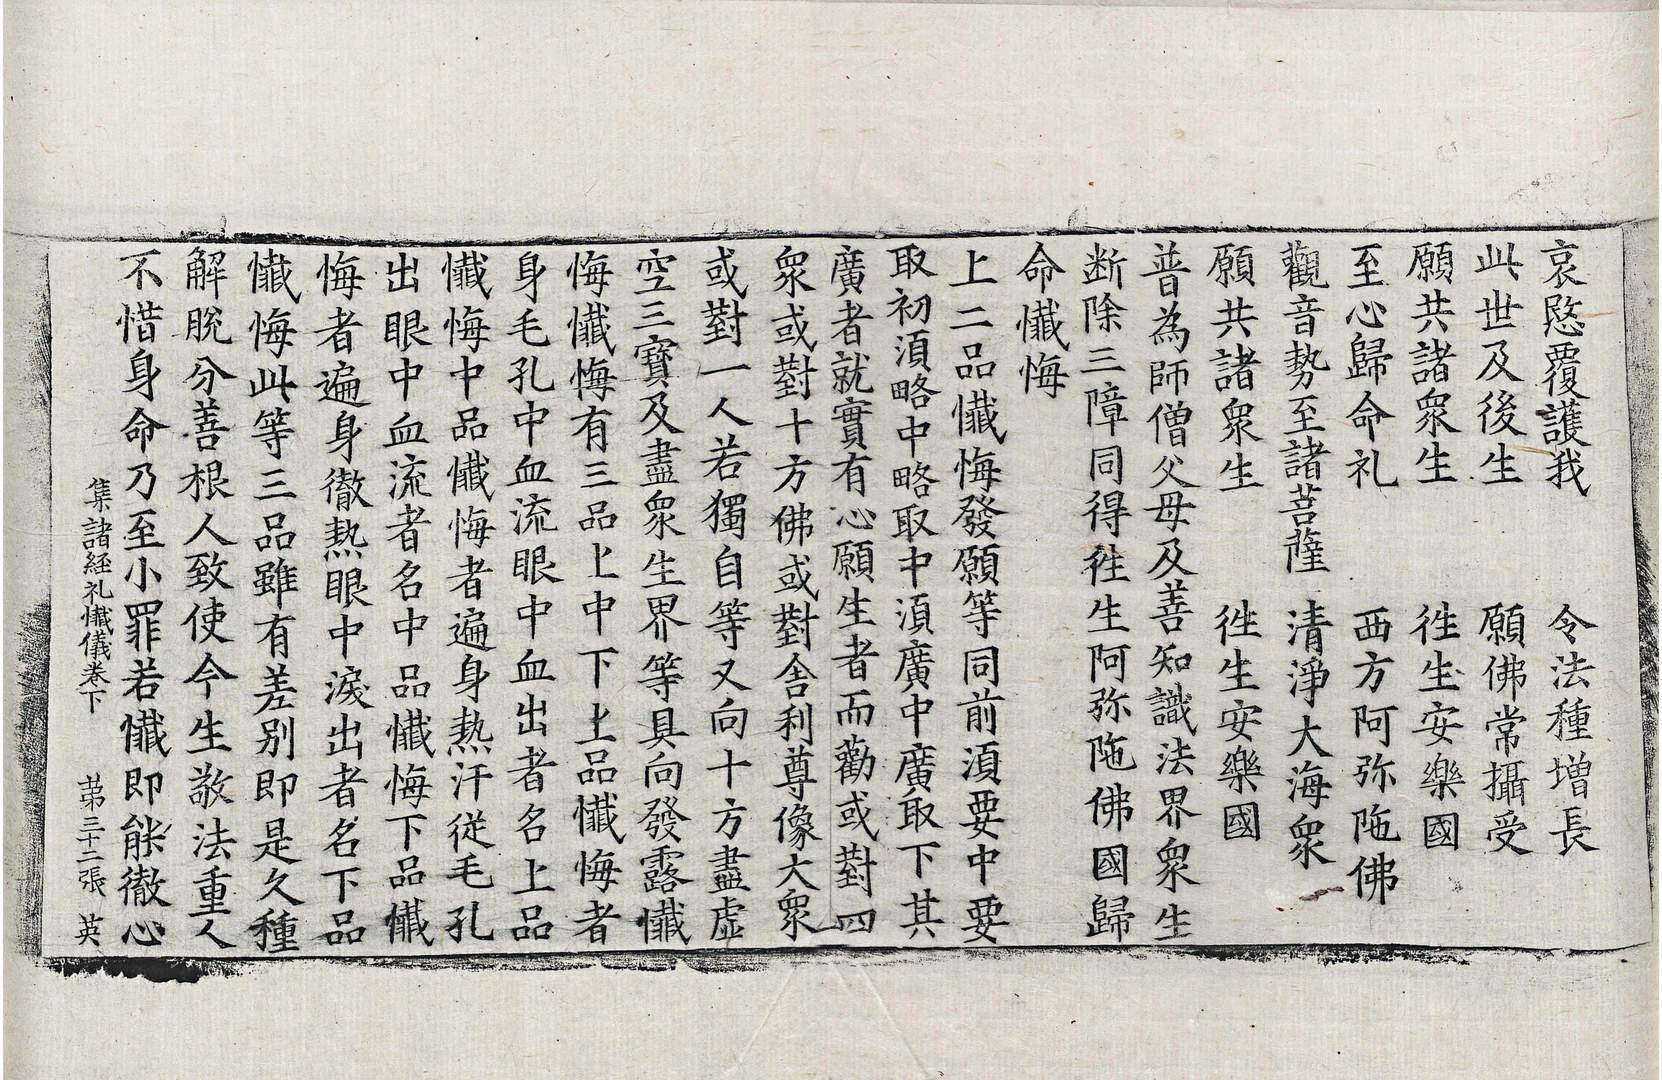 哀愍覆護我　令法種增長
此世及後生　願佛常攝受
願共諸衆生　徃生安樂國
至心歸命礼　西方阿弥陁佛
觀音勢至諸菩薩　清淨大海衆
願共諸衆生　徃生安樂國
普為師僧父母及善知識法界衆生
断除三障同得徃生阿弥陁佛國歸
命懺悔
上二品懺悔發願等同前湏要中要
取初湏略中略取中湏廣中廣取下其
廣者就實有心願生者而勸或對四
衆或對十方佛或對舎利尊像大衆
或對一人若獨自等又向十方盡虛
空三寶及盡衆生界等具向發露懺
悔懺悔有三品上中下上品懺悔者
身毛孔中血流眼中血出者名上品
懺悔中品懺悔者遍身熱汗従毛孔
出眼中血流者名中品懺悔下品懺
悔者遍身徹熱眼中淚出者名下品
懺悔此等三品雖有差別即是久種
解脫分善根人致使今生敬法重人
不惜身命乃至小罪若懺即能徹心
集諸経礼懺儀卷下　苐三十二張　英